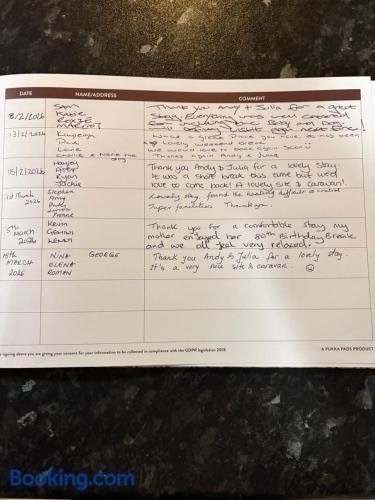 DATE NAME/ADDRESS COMMENT
8/2/2026
SAM
ROXIE
MARGOT
Thank you Andy & Julia for a great
stay. Everything was very
for including our Baby and Dog.
again next time!
13/2/2026
Dave
Louie
What a great place you have. It has been
a lovely weekend break
We would love to book again soon
Thanks again Andy & June
15/2/2026
Hayley
Jackie
Thank you Andy & Julia for a lovely stay
It was a short break this time but we'd
love to come back! A lovely site & caravan!
1st March
2026
Stephen
Amy
Lovely stay, found the heating difficult to control
Super facilities Thankyou.
5th
March
2026
Kevin
GEMINI
Thank you for a comfortable stay my
mother enjoyed her 80th Birthday Break
and we all feel very relaxed.
15th
MARCH
2026
NINA GEORGE
ELENA
ROMAN
Thank you Andy & Julia for a lovely stay.
It's a very nice site & caravan.
signing above you are giving your consent for your information to be collected in compliance with the GDPR legislation 2018
A PUKKA PADS PRODUCT
Booking.com